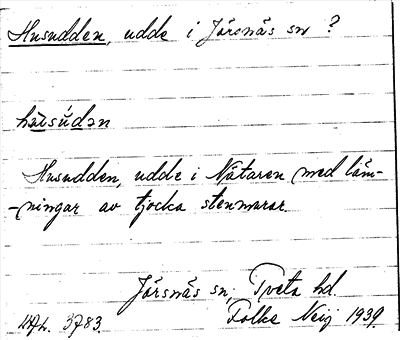 Husudden, udde i Järsnäs sn ?
Husudden, udde i Nätaren med läm-
-ningar av tjocka stenmurar.
Järsnäs sn, Tveta hd.
3783. Folke Neij 1939.